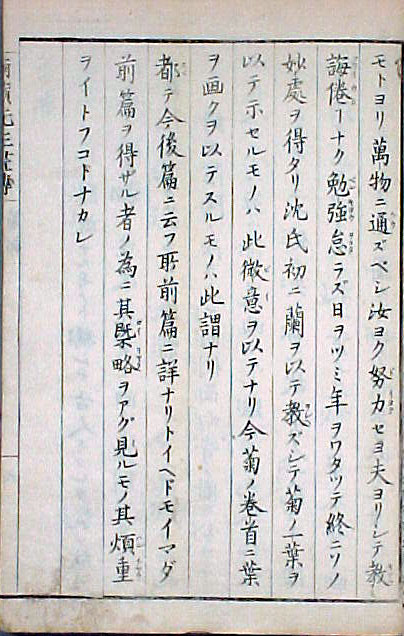 モトヨリ萬物ニ通ズベシ汝ヨク努力セヨ夫ヨリノシテ教
誨倦ーナク勉強怠ラズ日ヲツミ年ヲワタツテ終ニソノ
妙處ヲ得タリ沈氏初ニ蘭ヲ以テ教ズシテ菊ノ一葉ヲ
以テ示セルモノハ此微意ヲ以テナリ今菊ノ卷首ニ葉
ヲ画クヲ以テスルモノハ此謂ナリ
都テ今後篇ニ云フ所前篇ニ詳ナリトイヘドモイマダ
前篇ヲ得ザル者ノ為ニ其槩略ヲアグ見ルモノ其煩重
ヲイトフコトナカレ